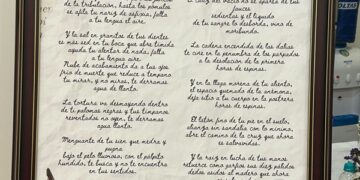 de la tribulación, hasta tus pómulos
se afila tu nariz de asfixia, falla
a tu lengua el aire.
Y la sal en granitos de tus dientes
es más sed en tu boca que abre tímida
aguada tu alentar de nada, falla
a tu lengua aire.
Nube de acabamiento da a tus ojos
frío de muerte que reduce a témpano
tu mirar, y no miras, te derramas
agua de llanto.
La tortura va desmayando dentro
de ti palomas negras y tus tímpanos
reventados no oyen, te derramas
agua llanto.
Menguante de tu sien que medra y
pugna
bajo el pelo lluviosa, con el pálpito
hundido, te busca y no te encuentra
en tus sentidos.
fauces
sedientas y el líquido
de tu sangre la desborda, vino de
moribundo.
La cadena encendida de tus dalias
te ciñe en la penumbra de tus parpados
a la desolación de la primera
horas de espinas.
Y en la llaga morena de tu aliento,
el espacio quemada de la anémona,
deja sitio a tu cuerpo en la postrera
horas de espinas.
El latón fino de tu pie en el suelo,
alianza sin sandalia con la mínima,
abre el camino de la cruz que ahora
es salvavidas.
Y la raíz en lucha de tus manos
retuerce como garfios sus diez palidos
dedos asidos al madero que ahora